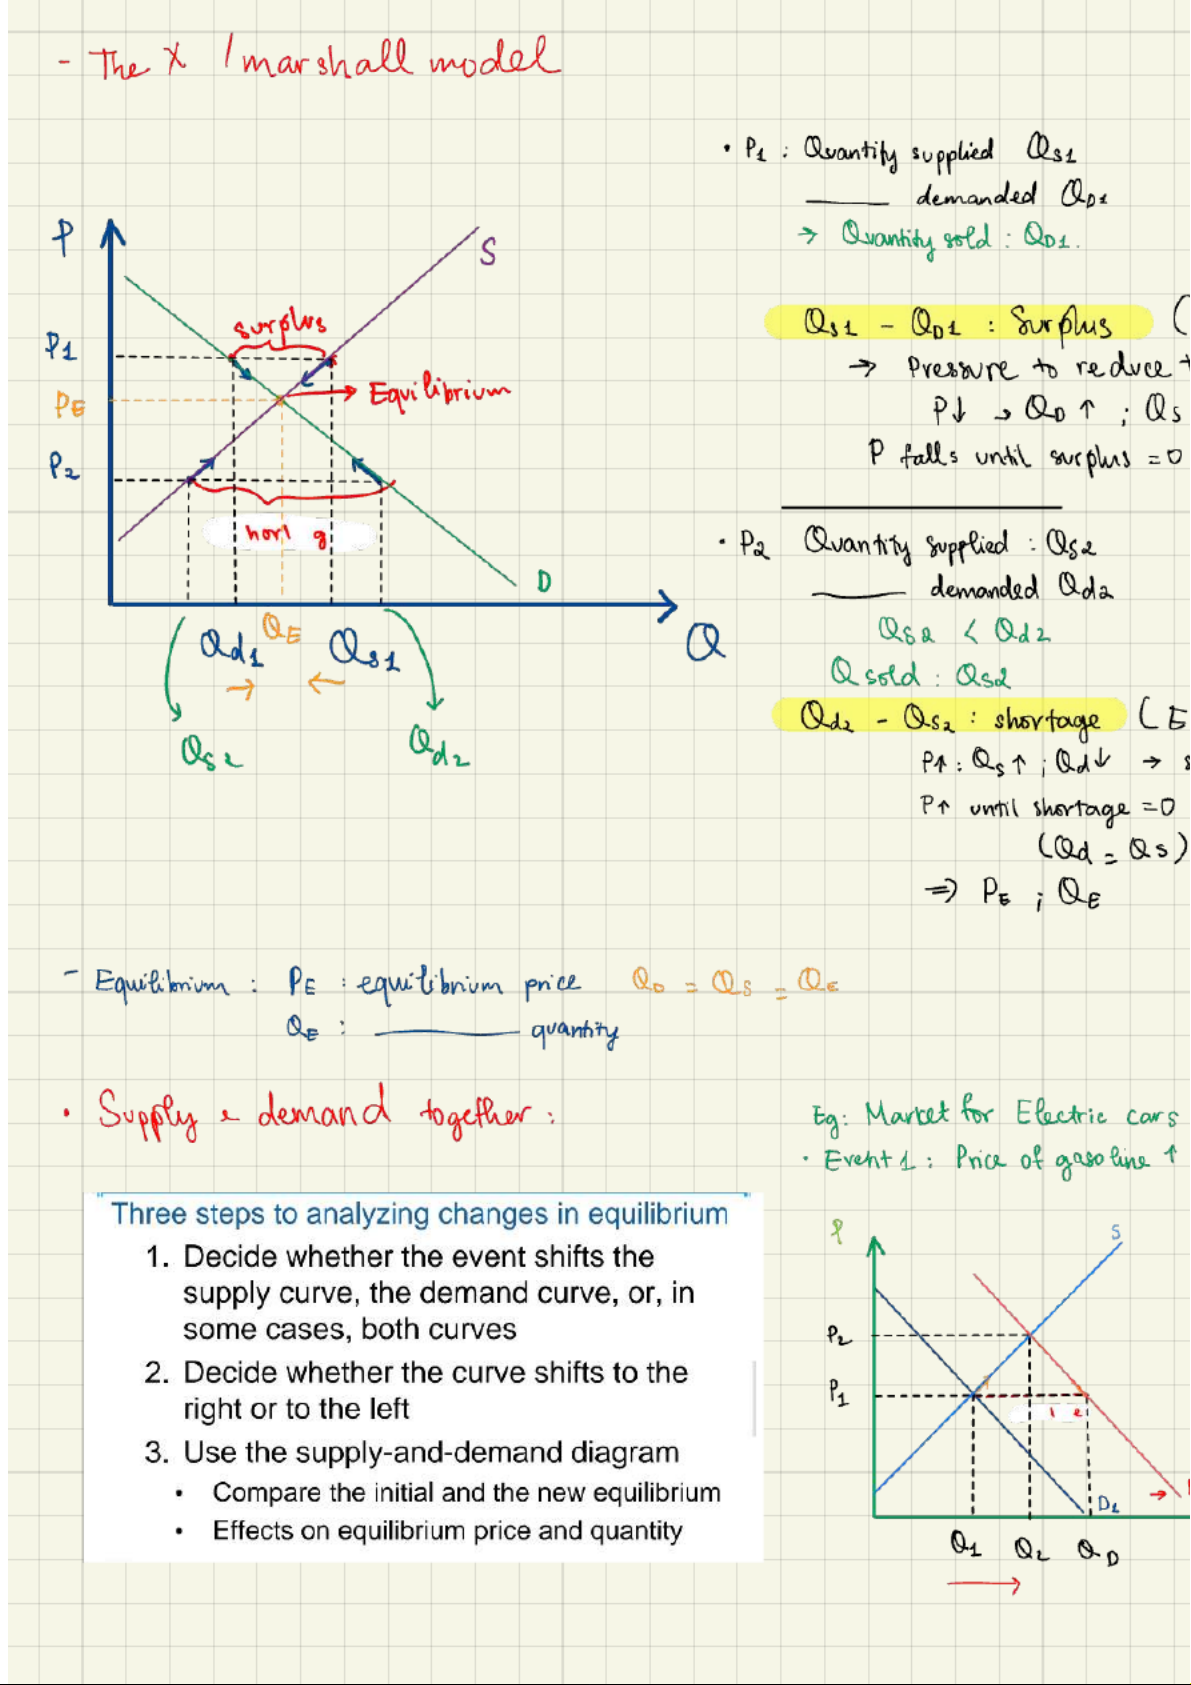 - The X / marshall model
• P1 : Quantity supplied QS1
____ demanded QD1
→ Quantity sold : QD1.
P
S
surplus
P1
PE
Equilibrium
P2
D
Q
Qd1
QE
QS1
QS2
Qd2
QS1 - QD1 : Surplus (
→ Pressure to reduce
P↓ → QD ↑ ; QS
P falls until surplus = 0
• P2 Quantity supplied : QS2
____ demanded Qd2
QS2 < Qd2
Q sold : QS2
Qd2 - QS2 : shortage (E
P↑ : QS ↑ ; Qd ↓ →
P↑ until shortage = 0
(Qd = QS)
⇒ PE ; QE
- Equilibrium : PE : equilibrium price QD = QS = QE
QE : ____ quantity
• Supply & demand together :
Eg: Market for Electric cars
• Event 1 : Price of gasoline ↑
Three steps to analyzing changes in equilibrium
1. Decide whether the event shifts the
supply curve, the demand curve, or, in
some cases, both curves
2. Decide whether the curve shifts to the
right or to the left
3. Use the supply-and-demand diagram
• Compare the initial and the new equilibrium
• Effects on equilibrium price and quantity
P
S
P2
P1
D1
Q1 Q2 QD